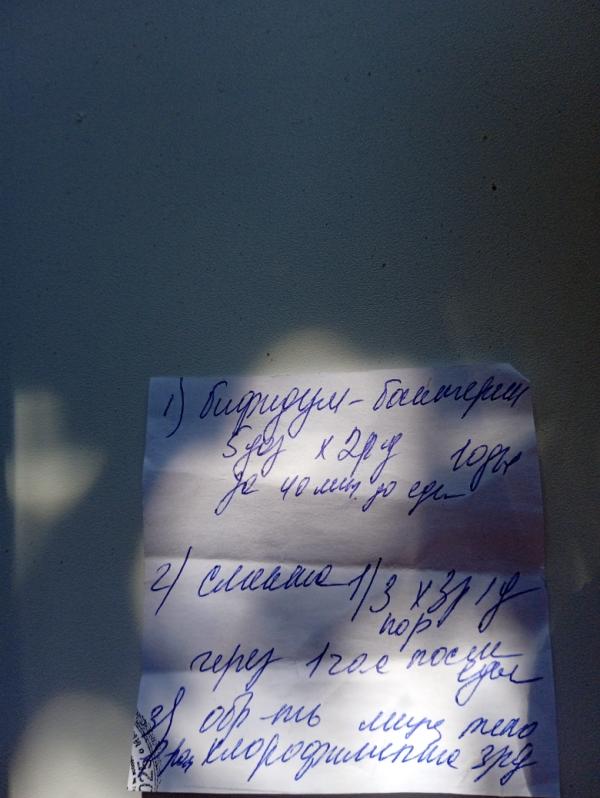 1) бифидум-бактерин
5 доз х 2рд 10дн
за 40 мин. до еды
2) смекта 1/3 х 3р/д
пор
через 1 час после
еды
3) обр-ть лицо тело
хлорофиллипта 3рд